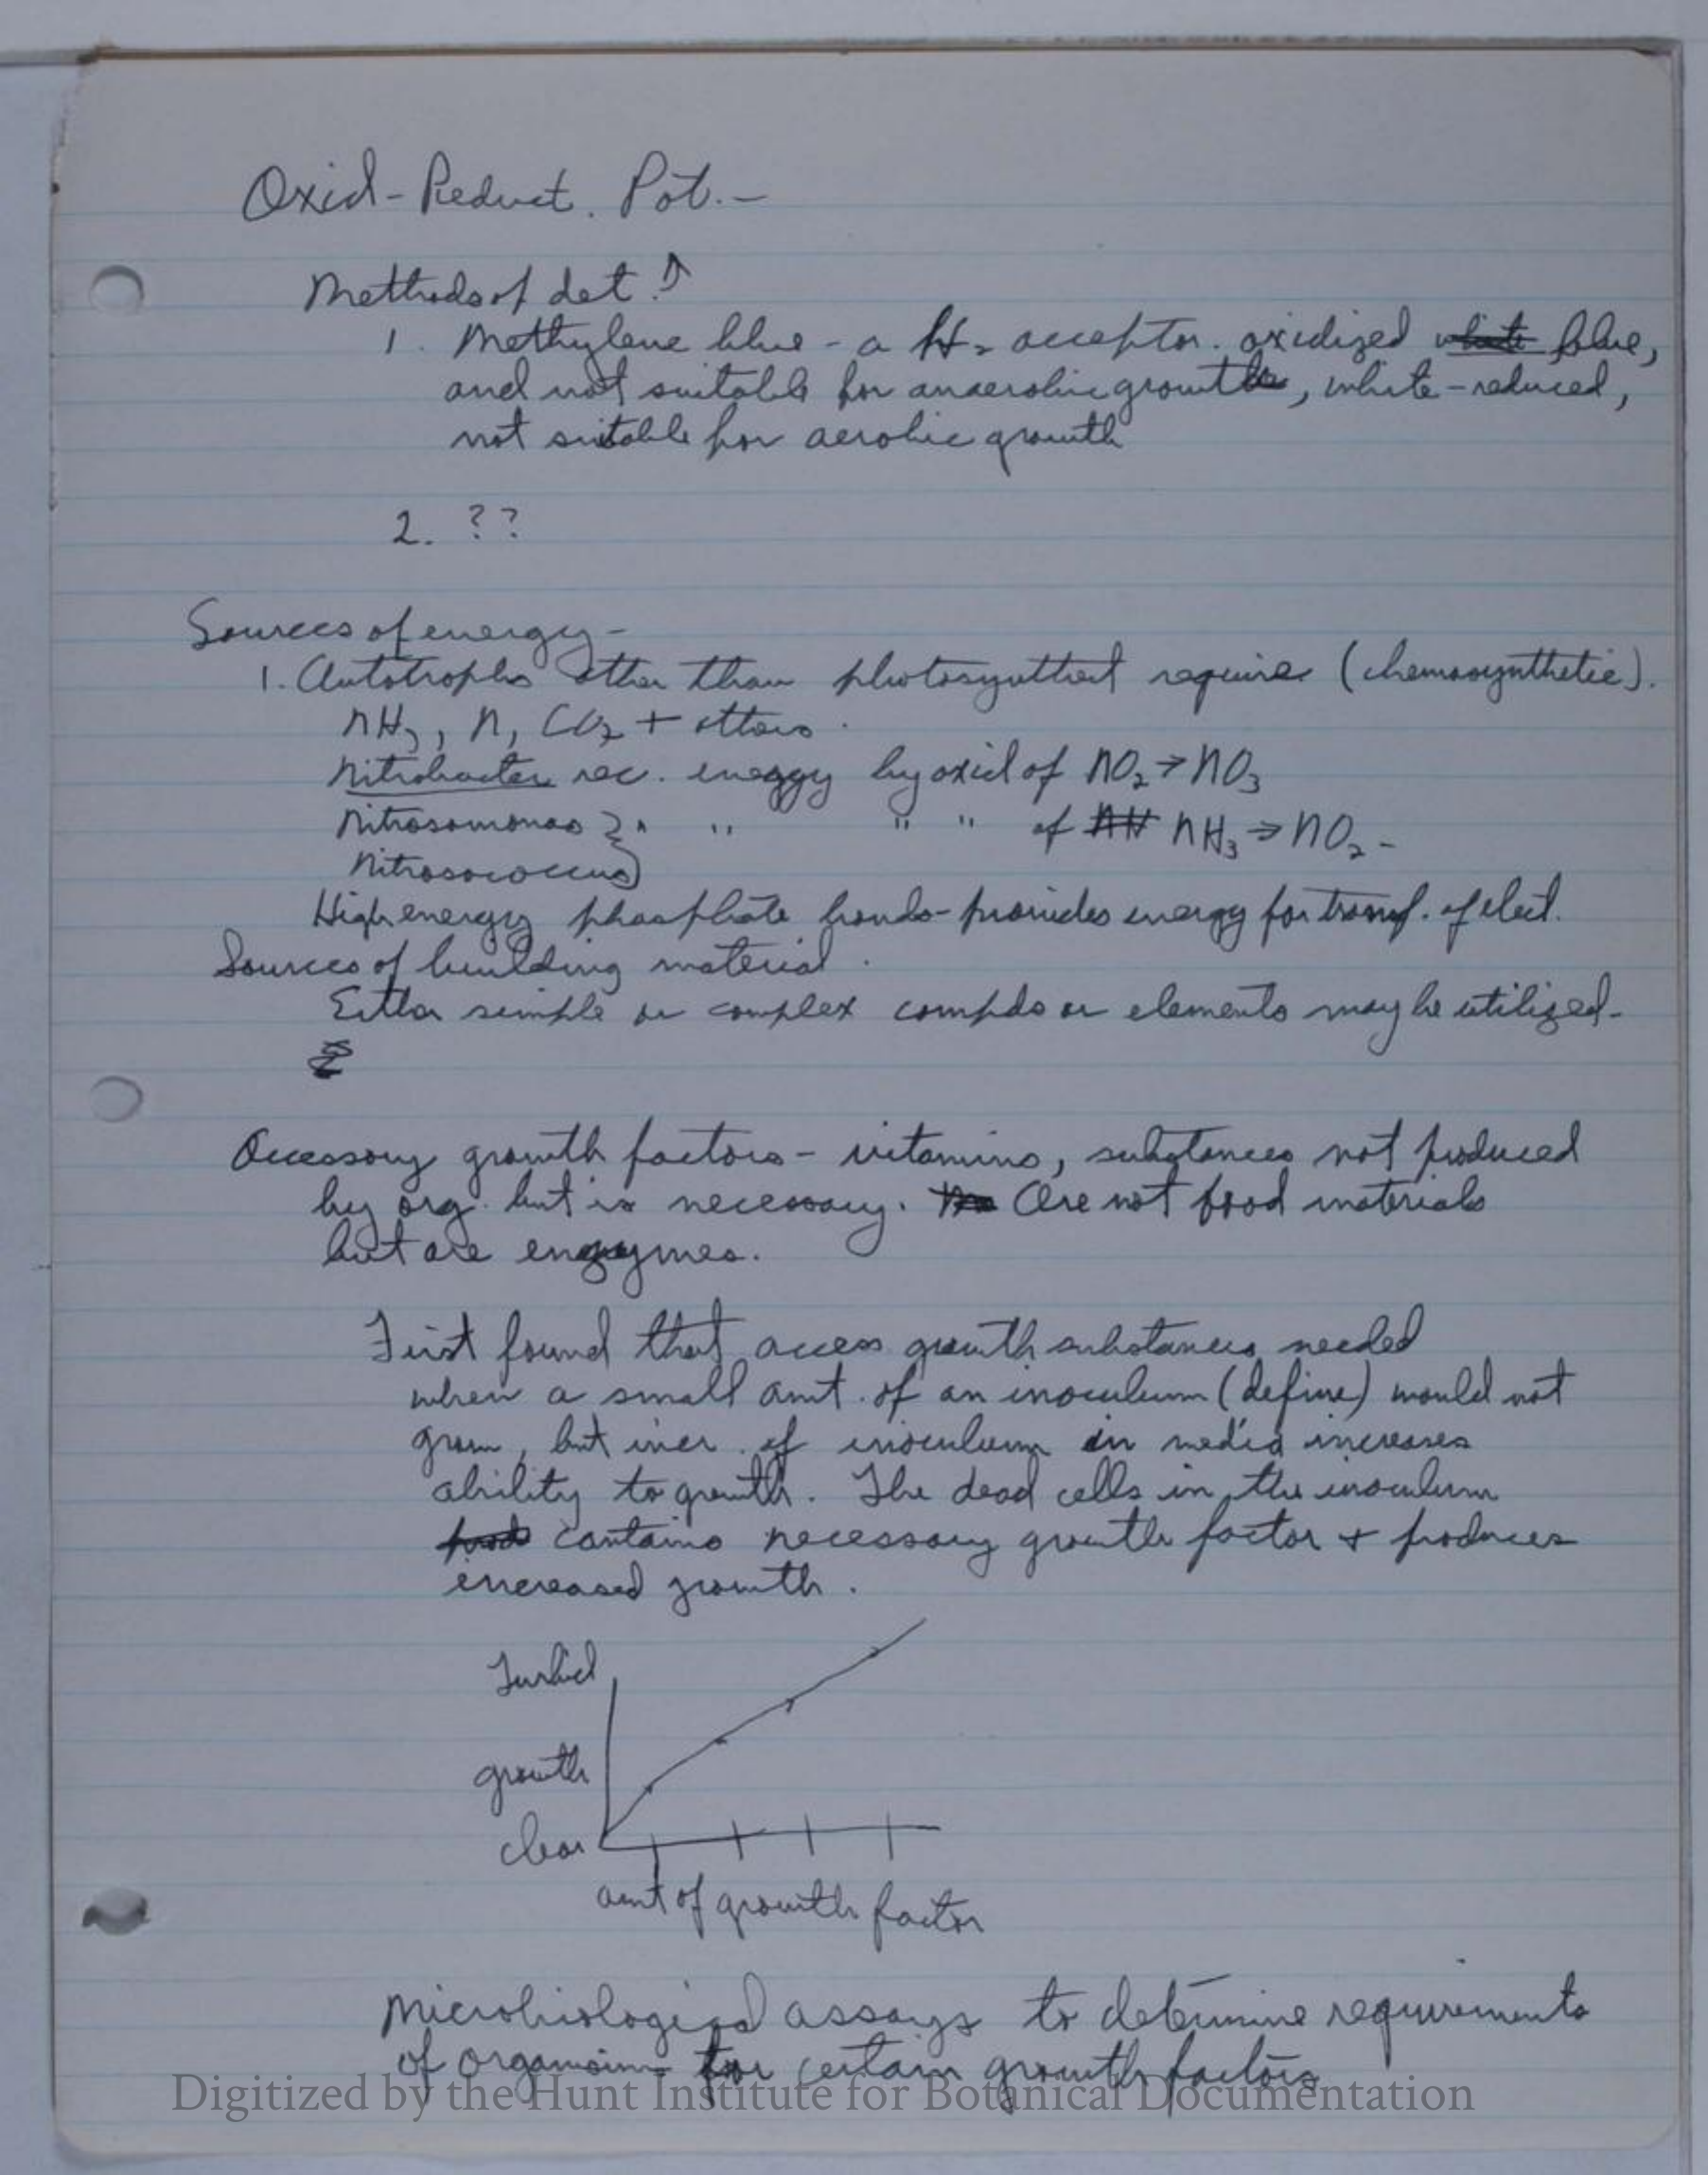 Oxid-Reduct. Pot.-
Methods of det.
1. Methylene blue - a H2 acceptor. oxidized white blue,
and not suitable for anaerobic growth, white-reduced,
not suitable for aerobic growth
2. ??
Sources of energy-
1. Autotrophs other than photosynthet require (chemosynthetic).
NH3, N, CO2 + others.
Nitrobacter rec. energy by oxid of NO2 → NO3
Nitrosomonas } " " " " of NH NH3 → NO2 -
Nitrosococcus
High energy phosphate bonds-provides energy for transf. of elect.
Sources of building material.
Either simple or complex compds or elements may be utilized-
Accessory growth factors - vitamins, substances not produced
by org. but is necessary. Are not food materials
but are enzymes.
First found that access growth substances needed
when a small amt. of an inoculum (define) would not
grow, but incr. of inoculum in media increases
ability to growth. The dead cells in the inoculum
prod contains necessary growth factor + produces
increased growth.
Turbid
growth
clear
amt of growth factor
Microbiological assays to determine requirements
of organism for certain growth factors
Digitized by the Hunt Institute for Botanical Documentation